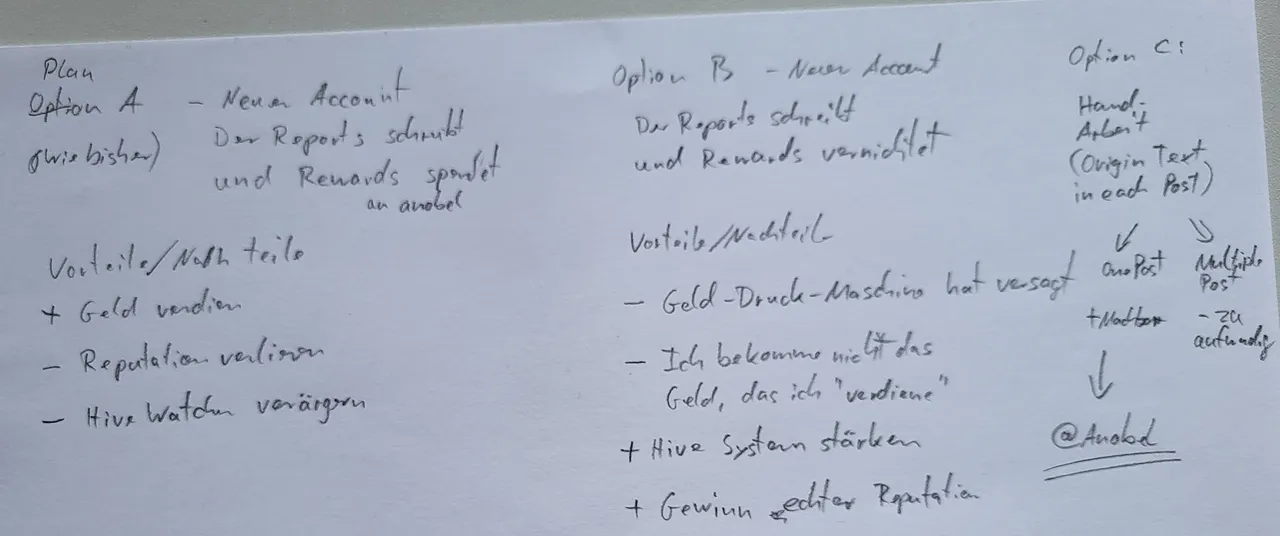 Plan
Option A - Neuer Account
(wie bisher)
Der Reports schreibt
und Rewards spendet
an anobel
Vorteile/Nachteile
+ Geld verdien
- Reputation verlieren
- Hive Watcher verärgern
Option B - Neuer Account
Der Reports schreibt
und Rewards vernichtet
Vorteile/Nachteile
- Geld-Druck-Maschine hat versagt
- Ich bekomme nicht das
Geld, das ich "verdiene"
+ Hive System stärken
+ Gewinn echter Reputation
Option C:
Hand-
Arbeit
(Origin Text
in each Post)
One Post
Multiple
Post
- zu
aufwändig
@Anobel